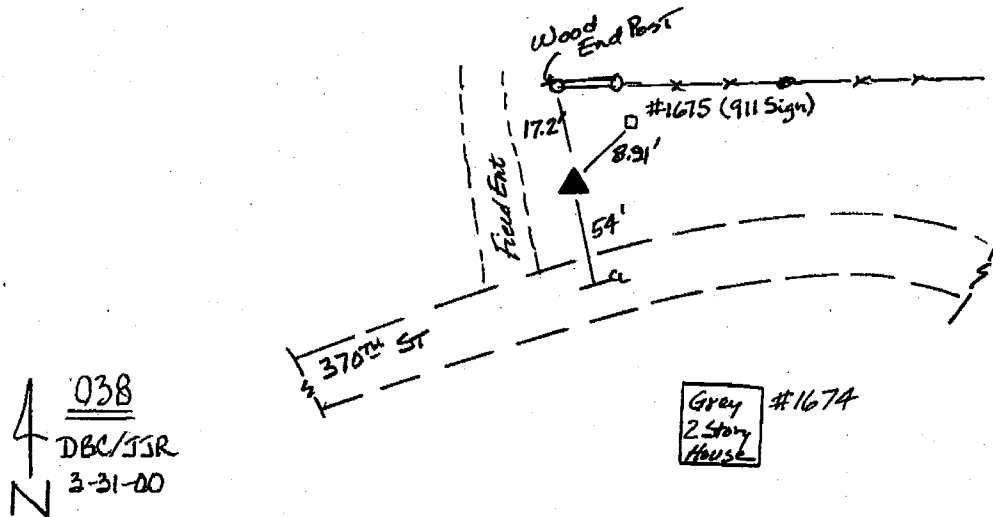 Wood
End Post
#1675 (911 Sign)
17.2'
8.91'
Field Ent
54'
CL
370TH ST
Grey
2 Story
House
#1674
038
DBC/JJR
3-31-00
N